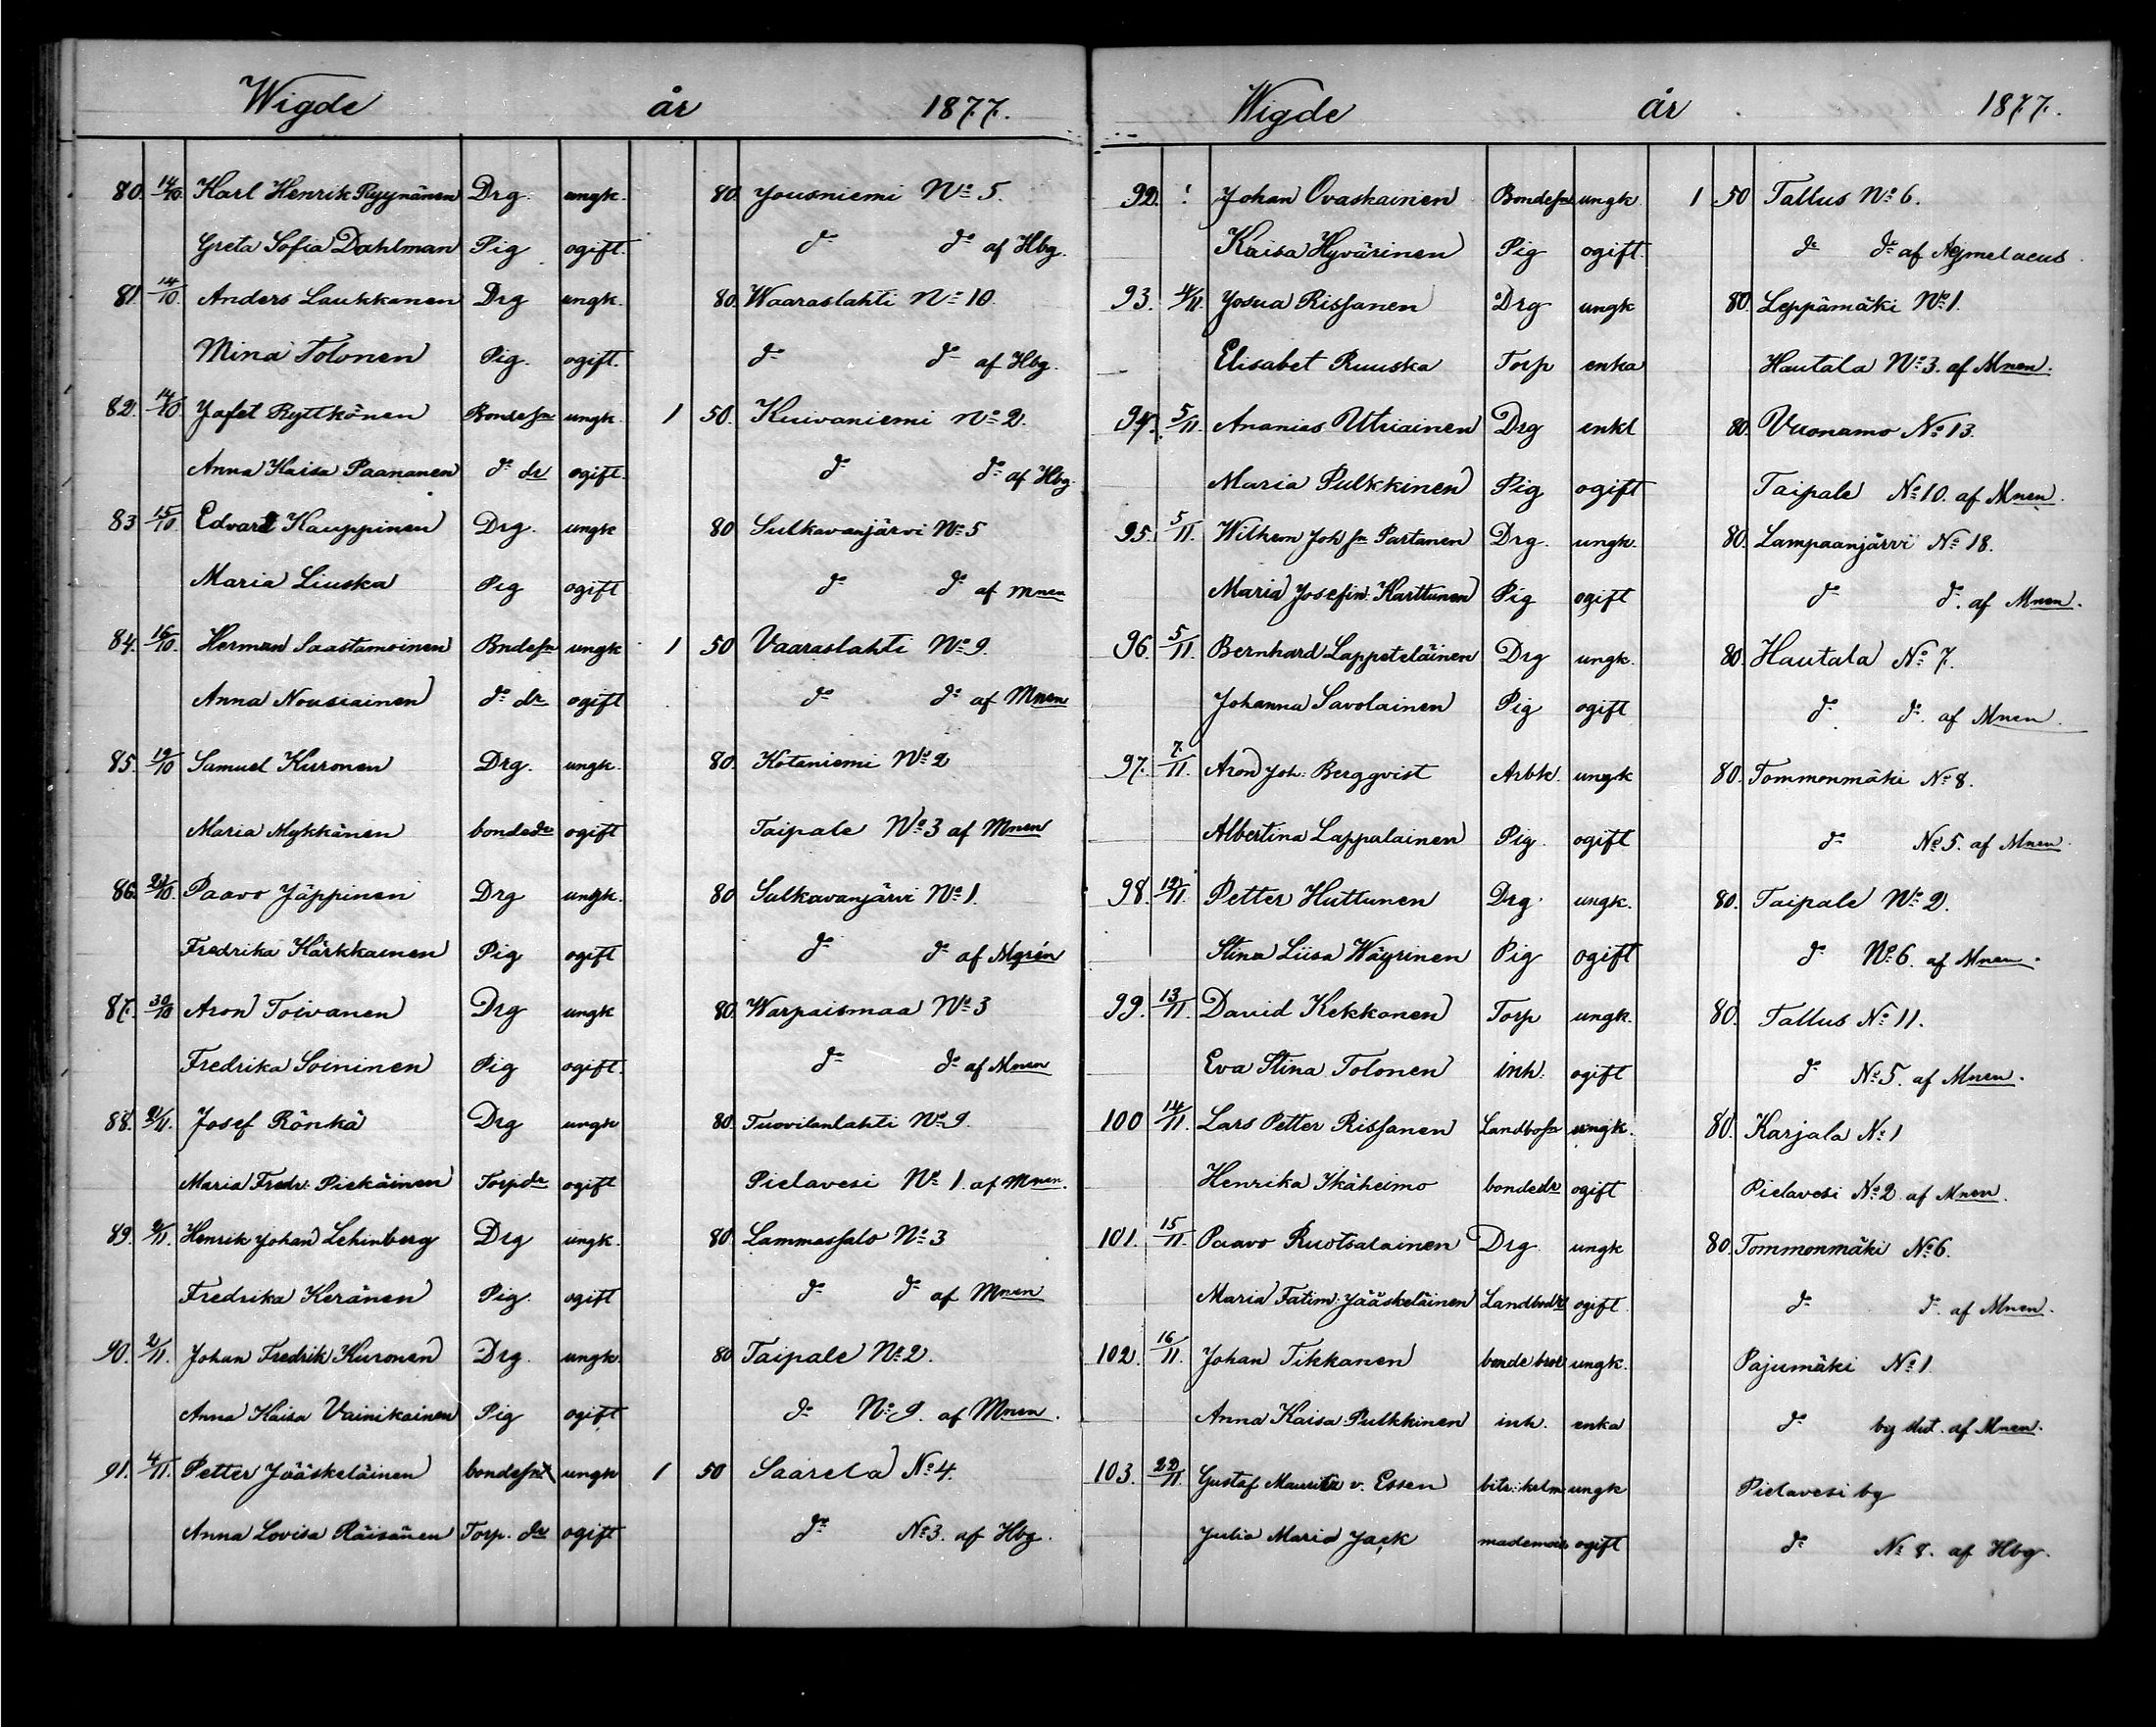 Wigde år 1877.
80. 14/10 Karl Henrik Ryynänen Drg. ungk. 80. Jousniemi No 5.
Greta Sofia Dahlman Pig ogift. do do af Hbg.
81. 14/10 Anders Laukkanen Drg ungk. 80. Waaraslahti No 10.
Mina Tolonen Pig. ogift. do do af Hbg.
82. 14/10 Jafet Rytkönen Bondesn ungk. 1 50. Kuivaniemi No 2.
Anna Kaisa Paananen do dr ogift. do do af Hbg.
83 15/10 Edvard Kauppinen Drg. ungk 80 Sulkavanjärvi No 5
Maria Liuska Pig ogift do do af Mnen
84. 16/10. Herman Saastamoinen Bndesn ungk 1 50 Vaaraslahti No 9.
Anna Nousiainen do dr ogift do do af Mnen
85. 19/10 Samuel Kuronen Drg. ungk. 80. Kotaniemi No 2
Maria Mykkänen bondedr ogift Taipale No 3 af Mnen
86. 21/10 Paavo Jäppinen Drg ungk. 80 Sulkavanjärvi No 1.
Fredrika Kärkkainen Pig ogift do do af Mgrén
87. 30/10 Aron Toivanen Drg ungk 80 Warpaismaa No 3
Fredrika Soininen Pig ogift. do do af Mnen
88. 2/11. Josef Rönkä Drg ungk 80. Tuovilanlahti No 9.
Maria Fredr: Piekäinen Torpdr ogift Pielavesi No 1. af Mnen.
89. 2/11. Henrik Johan Lehinberg Drg ungk. 80. Lammassalo No 3
Fredrika Keränen Pig. ogift do do af Mnen
90. 2/11. Johan Fredrik Kuronen Drg. ungk. 80 Taipale No 2.
Anna Kaisa Vainikainen Pig ogift do No 9. af Mnen.
91. 4/11. Petter Jääskeläinen bondesn ungk 1 50 Saarela No 4.
Anna Lovisa Räisänen Torp. dr ogift do No 3. af Hbg.
Wigde år 1877.
92. Johan Ovaskainen Bondesn ungk 1 50 Tallus No 6.
Kaisa Hyvärinen Pig ogift. do do af Aejmelaeus.
93. 4/11. Josua Rissanen Drg ungk 80. Leppämäki No 1.
Elisabet Ruuska Torp enka Hautala No 3. af Mnen.
94. 5/11. Ananias Utriainen Drg enkl 80. Vuonamo No 13.
Maria Pulkkinen Pig ogift Taipale No 10. af Mnen.
95. 5/11. Wilhem Joh sn Partanen Drg. ungk. 80. Lampaanjärvi No 18.
Maria Josefin: Karttunen Pig ogift do do. af Mnen.
96. 5/11. Bernhard Lappeteläinen Drg ungk. 80. Hautala No 7.
Johanna Savolainen Pig ogift do do. af Mnen.
97. 7/11. Aron Joh: Berggvist Arbk. ungk 80. Tommonmäki No 8.
Albertina Lappalainen Pig. ogift do No 5. af Mnen.
98. 12/11. Petter Huttunen Drg. ungk. 80. Taipale No 2.
Stina Liisa Wäyrinen Pig ogift do No 6. af Mnen.
99. 13/11. David Kekkonen Torp ungk. 80. Tallus No 11.
Eva Stina Tolonen inh. ogift do No 5. af Mnen.
100 14/11. Lars Petter Rissanen Landbosn ungk. 80. Karjala No 1
Henrika Ikäheimo bondedr ogift Pielavesi No 2 af Mnen.
101. 15/11 Paavo Ruotsalainen Drg ungk 80. Tommonmäki No 6.
Maria Fatim: Jääskeläinen Landbodr ogift do do. af Mnen.
102. 16/11. Johan Tikkanen bonde bror ungk. Pajumäki No 1
Anna Kaisa Pulkkinen inh. enka do by af Mnen.
103. 22/11. Gustaf Mauritz v. Essen bitr: ungk Pielavesi by
Julia Maria Jack ogift do No 8. af Hbg.